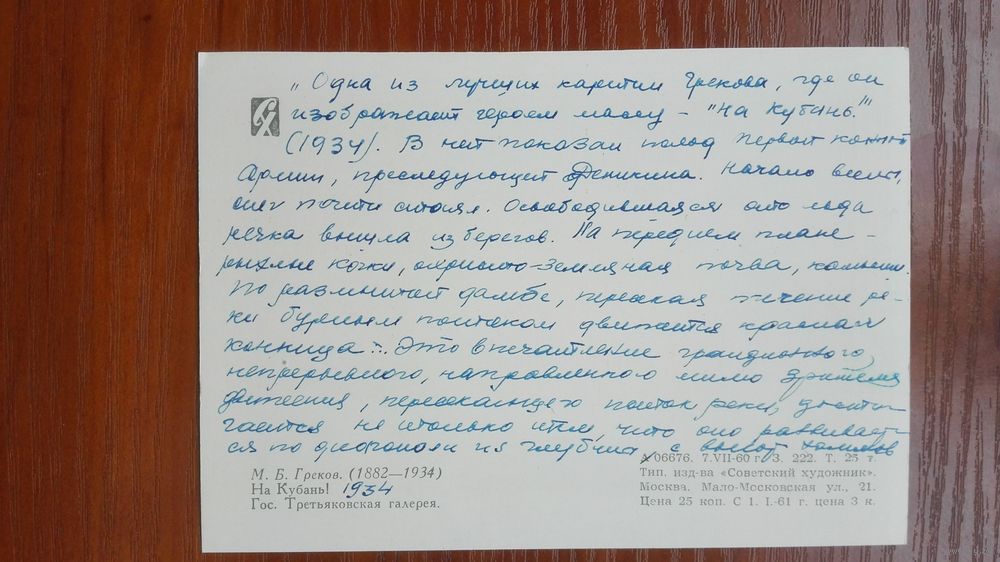 "Одна из лучших картин Грекова, где он
изображает героем массу - "На Кубань!"
(1934). В ней показан поход Первой конной
Армии, преследующей Деникина. Начало весны,
снег почти стаял. Освободившаяся ото льда
речка вышла из берегов. На переднем плане -
рыхлые кочки, охристо-земляная почва, камыши.
По размытой дамбе, пересекая течение ре-
ки бурным потоком движется красная
конница... Это впечатление грандиозного,
непрерывного, направленного мимо зрителя
движения, пересекающего поток реки, дости-
гается не столько тем, что оно развивает-
ся по диагонали из глубины с высот холмов
М. Б. Греков. (1882—1934)
На Кубань! 1934
Гос. Третьяковская галерея.
А 06676. 7.VII-60 г. З. 222. Т. 25 т.
Тип. изд-ва «Советский художник».
Москва, Мало-Московская ул., 21.
Цена 25 коп. С 1. I.-61 г. цена 3 к.